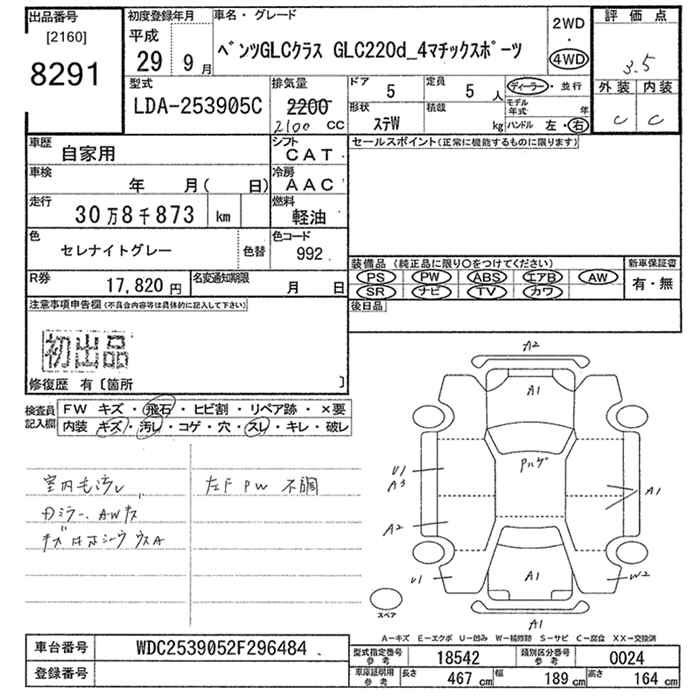 出品番号
[2160]
8291
初度登録年月
平成
29 9月
車名・グレード
ベンツGLCクラス GLC220d_4マチックスポーツ
2WD
・
4WD
評価点
3.5
外装 内装
C C
型式
LDA-253905C
排気量
2200
2100 CC
ドア
5
定員
5 人
ディーラー・並行
モデル年式 年
形状
ステW
積載
kg
ハンドル 左・右
車歴
自家用
シフト
CAT
セールスポイント(正常に機能するものに限ります)
車検
年 月( 日)
冷房
AAC
走行
30万8千873 km
燃料
軽油
色
セレナイトグレー
色替
色コード
992
装備品(純正品に限り○をつけてください)
PS PW ABS エアB AW
SR ナビ TV カワ
新車保証書
有・無
R券
17,820円
名変通知期限
月 日
後日品
注意事項申告欄(不具合内容等は具体的に記入して下さい)
初出品
修復歴 有〔箇所 〕
検査員記入欄
FW キズ・飛石・ヒビ割・リペア跡・×要
内装 キズ・汚レ・コゲ・穴・スレ・キレ・破レ
室内キ汚レ
左F PW 不調
A2
A1
Pルーフ
U1
A3
A1
A2
U1
A1
W2
A1
スペア
A-キズ E-エクボ U-凹み W-補修跡 S-サビ C-腐食 XX-交換済
車台番号
WDC2539052F296484
登録番号
型式指定番号
参考
18542
類別区分番号
参考
0024
車庫証明用
参考
長さ
467 cm
幅
189 cm
高さ
164 cm